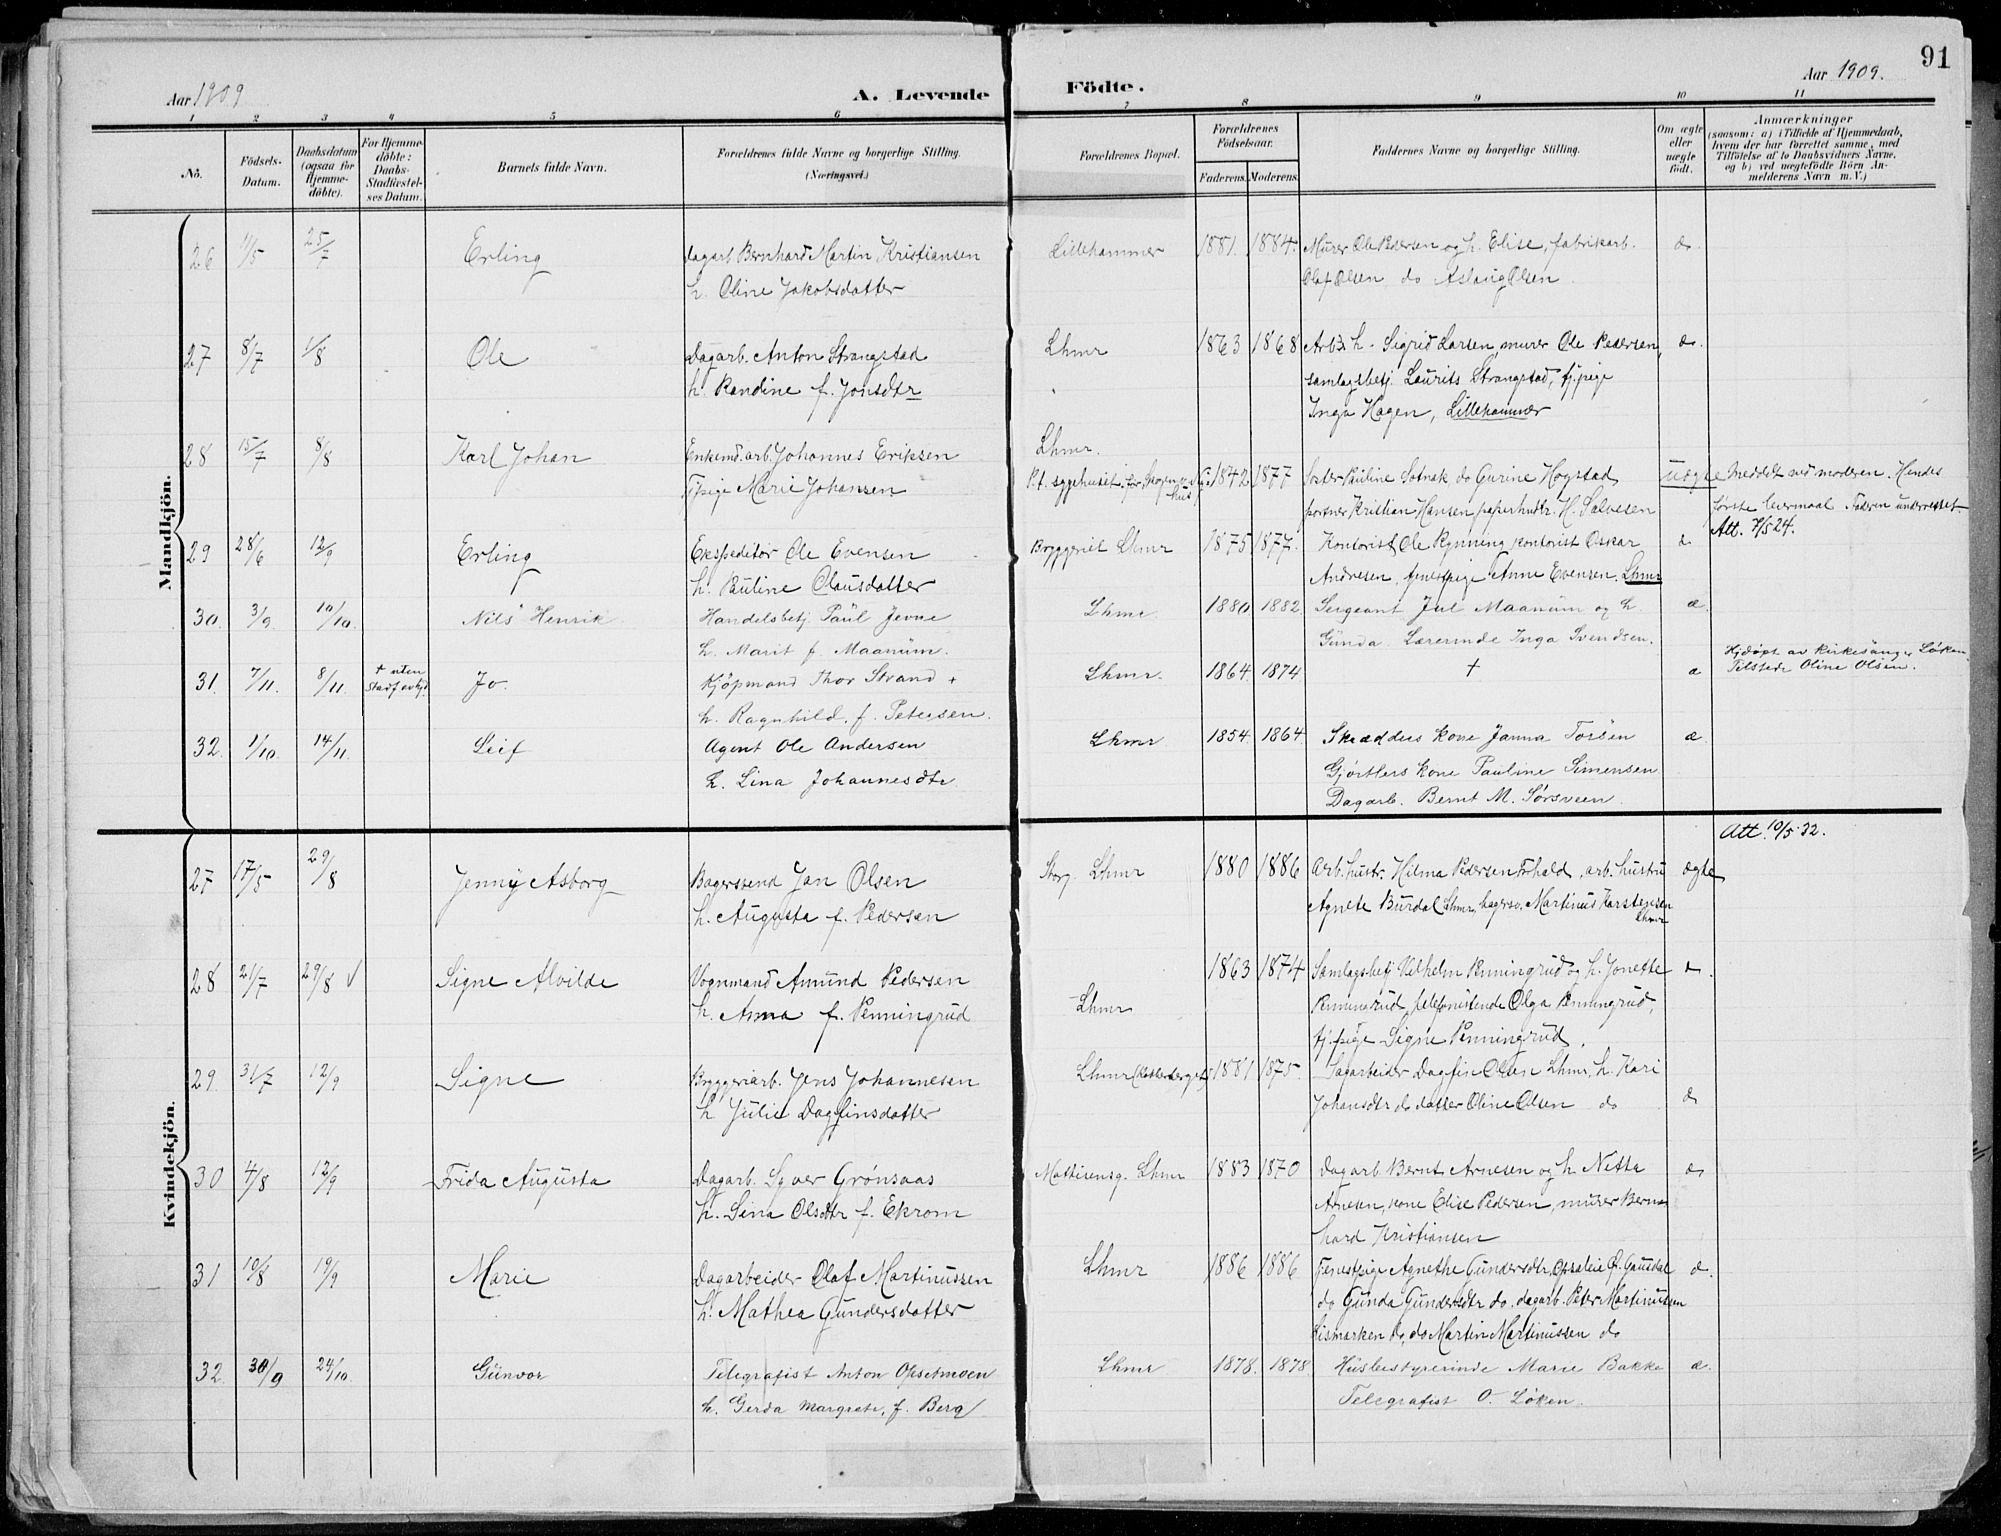 91
Aar 1909
A. Levende Födte.
Aar 1909.
1 2 3 4 5 6 7 8 9 10 11
No.
Födsels-
Datum.
Daabsdatum
(ogsaa for
Hjemme-
döbte).
For Hjemme-
döbte:
Daabs-
Stadfæstel-
ses Datum.
Barnets fulde Navn.
Forældrenes fulde Navne og borgerlige Stilling.
(Næringsvei.)
Forældrenes Bopæl.
Forældrenes
Födselsaar.
Faderens. Moderens.
Faddernes Navne og borgerlige Stilling.
Om ægte
eller
uægte
födt.
Anmærkninger
(saasom: a) i Tilfælde af Hjemmedaab,
hvem der har forrettet samme, med
Tilföielse af to Daabsvidners Navne,
og b) ved uægtefödte Börn An-
melderens Navn m. V.)
Mandkjön.
26 11/5 25/7 Erling dagarb Bernhard Martin Kristiansen Lillehammer 1881. 1884. Murer Ole Pedersen og h. Elise, fabrikarb. æ.
h. Oline Jakobsdatter Olaf Olsen do Aslaug Olsen
27 8/7 1/8 Ole Dagarb. Anton Strangstad Lhmr 1863 1868 Arbs h. Sigrid Larsen, murer Ole Pedersen, æ.
h. Randine f. Jonsdtr samlagsbetj. Laurits Strangstad, tj.pige
Inga Hagen, Lillehammer
28 15/7 8/8 Karl Johan Enkemd. arb. Johannes Eriksen Lhmr.
Tj.pige Marie Johansen P.t. sygehuset, 1842 1877 Søster Pauline Sotnak do Gurine Hogstad, uægte Meddelt ved moderen. Hendes
portner Kristian Hansen papirhndlr. H. Salvesen første leiermaal. Faderen underrettet.
Att. 7/5 24.
29 28/6 12/9 Erling Ekspeditør Ole Evensen Bryggeriet Lhmr 1875 1877. Kontorist Ole Rynning, kontorist Oskar æ
h. Pauline Olausdatter Andresen, tjenestpige Anne Evensen, Lhmr
30. 3/9. 10/10. Nils Henrik Handelsbetj. Paul Jevne Lhmr 1880 1882. Sergeant Jul Maanum og h. æ.
h. Marit f. Maanum. Gunda. Lærerinde Inga Svendsen.
31. 7/11. 8/11. + uten Stadf. avltjd. Jo. Kjøpmand Thor Strand + Lhmr. 1864. 1874 + æ Hjdøpt av kirkesanger Løken.
h. Ragnhild. f. Petersen. Tilstede Oline Olsen.
32. 1/10. 14/11. Leif Agent Ole Andersen Lhmr 1854. 1864. Skrædders kone Janna Torsen æ.
h. Lina Johannesdtr. Gjørtlers kone Pauline Simensen
Dagarb. Bernt M. Sørsveen.
Kvindekjön.
Att. 10/5 32.
27 17/5 29/8 Jenny Asborg Bagersvend Jan Olsen Storg. Lhmr 1880 1886 Arb. hustr. Hilma Pedersen arb. hustru ægte
h. Augusta f. Pedersen Agnete Burdal Lhmr, bagersv. Martinus Karstensen
Lhmr
28 21/7 29/8 √ Signe Alvilde Vognmand Amund Pedersen Lhmr 1863 1874 Samlagsbetj Vilhelm Renningrud og h. Jonette æ.
h. Anna f. Renningrud Renningrud, telefonistinde Olga Renningrud,
tj.pige Signe Renningrud.
29. 31/7 12/9 Signe Bryggeriarb. Jens Johannesen Lhmr 1881 1875. Sagarbeider Dagfin Olsen Lhmr, h. Kari
h Julie Dagfinsdatter Johansdtr do datter Oline Olsen do æ
30 4/8 12/9 Frida Augusta Dagarb. Syver Grønsaas Mathiesensg. Lhmr 1883 1870 Dagarb. Bernt Arnesen og h. Netta æ
h. Lina Olsdtr f. Ekrom Arnesen, kone Elise Pedersen, murer Bern-
hard Kristiansen
31 10/8 19/9 Marie Dagarbeider Olaf Martinussen Lhmr 1886 1886 Tjenestpige Agnethe Gundersdtr, Ø. Gausdal æ.
h. Mathea Gundersdatter do Gunda Gundersdtr do. dagarb. Peter Martinussen
Bismarken do, do Martin Martinussen do
32. 30/9 24/10. Gunvor Telegrafist Anton Opsetmoen Lhmr 1878. 1878. Husbestyrerinde Marie Bakke æ.
h. Gerda Margrete, f. Berg Telegrafist O. Løken.